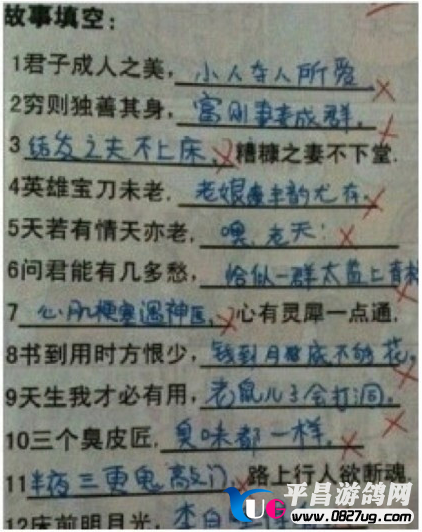 故事填空：
1君子成人之美，小人夺人所爱
2穷则独善其身，富则妻妾成群。
3结发之夫不上床，糟糠之妻不下堂.
4英雄宝刀未老，老娘丰韵尤存。
5天若有情天亦老，嘿，老天！
6问君能有几多愁，恰似一群太监上青楼
7心肌梗塞遇神医，心有灵犀一点通.
8书到用时方恨少，钱到月底不够花。
9天生我才必有用，老鼠儿子会打洞。
10三个臭皮匠，臭味都一样。
11半夜三更鬼敲门，路上行人欲断魂
12床前明月光，李白
UC 平昌游鸽网
www.0827ug.com